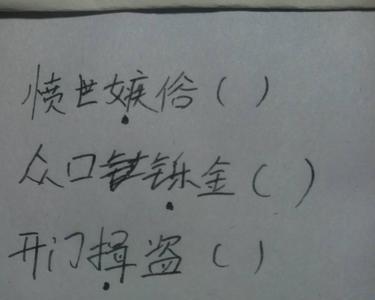 愤世嫉俗（ ）
众口铄金（ ）
开门揖盗（ ）